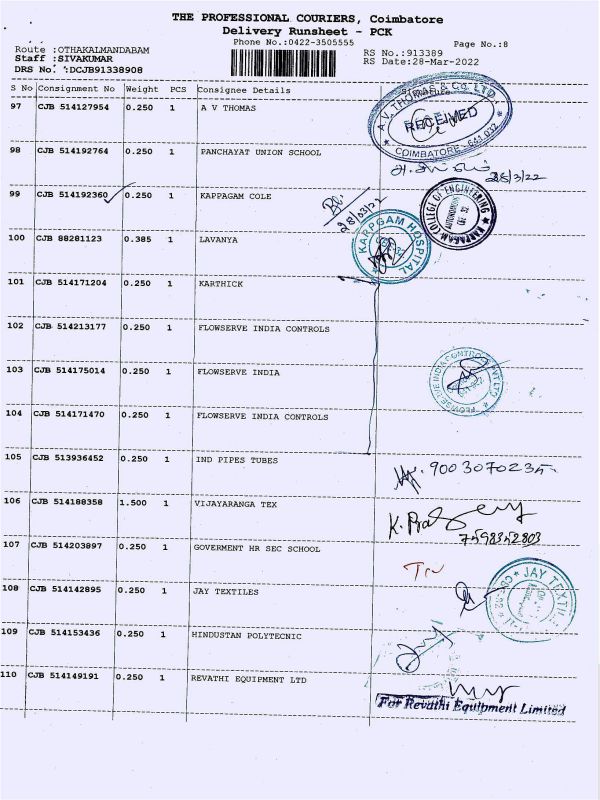 THE PROFESSIONAL COURIERS, Coimbatore
Delivery Runsheet - PCK
Phone No.:0422-3505555 Page No.:8
Route :OTHAKALMANDABAM RS No.:913389
Staff :SIVAKUMAR RS Date:28-Mar-2022
DRS No. :DCJB91338908
S No Consignment No Weight PCS Consignee Details
97 CJB 514127954 0.250 1 A V THOMAS
A.V. THOMAS & CO. LTD.
RECEIVED
COIMBATORE - 641 032
28/3/22
98 CJB 514192764 0.250 1 PANCHAYAT UNION SCHOOL
99 CJB 514192360 0.250 1 KAPPAGAM COLE
28/03/22
KARPAGAM COLLEGE OF ENGINEERING
AUTONOMOUS
CBE - 32
KARPGAM HOSPITAL
100 CJB 88281123 0.385 1 LAVANYA
101 CJB 514171204 0.250 1 KARTHICK
102 CJB 514213177 0.250 1 FLOWSERVE INDIA CONTROLS
103 CJB 514175014 0.250 1 FLOWSERVE INDIA
FLOWSERVE INDIA CONTROLS PVT LTD
104 CJB 514171470 0.250 1 FLOWSERVE INDIA CONTROLS
105 CJB 513936452 0.250 1 IND PIPES TUBES
9003070235
106 CJB 514188358 1.500 1 VIJAYARANGA TEX
7598352803
107 CJB 514203897 0.250 1 GOVERMENT HR SEC SCHOOL
108 CJB 514142895 0.250 1 JAY TEXTILES
JAY TEXTILE
109 CJB 514153436 0.250 1 HINDUSTAN POLYTECNIC
110 CJB 514149191 0.250 1 REVATHI EQUIPMENT LTD
For Revathi Equipment Limited